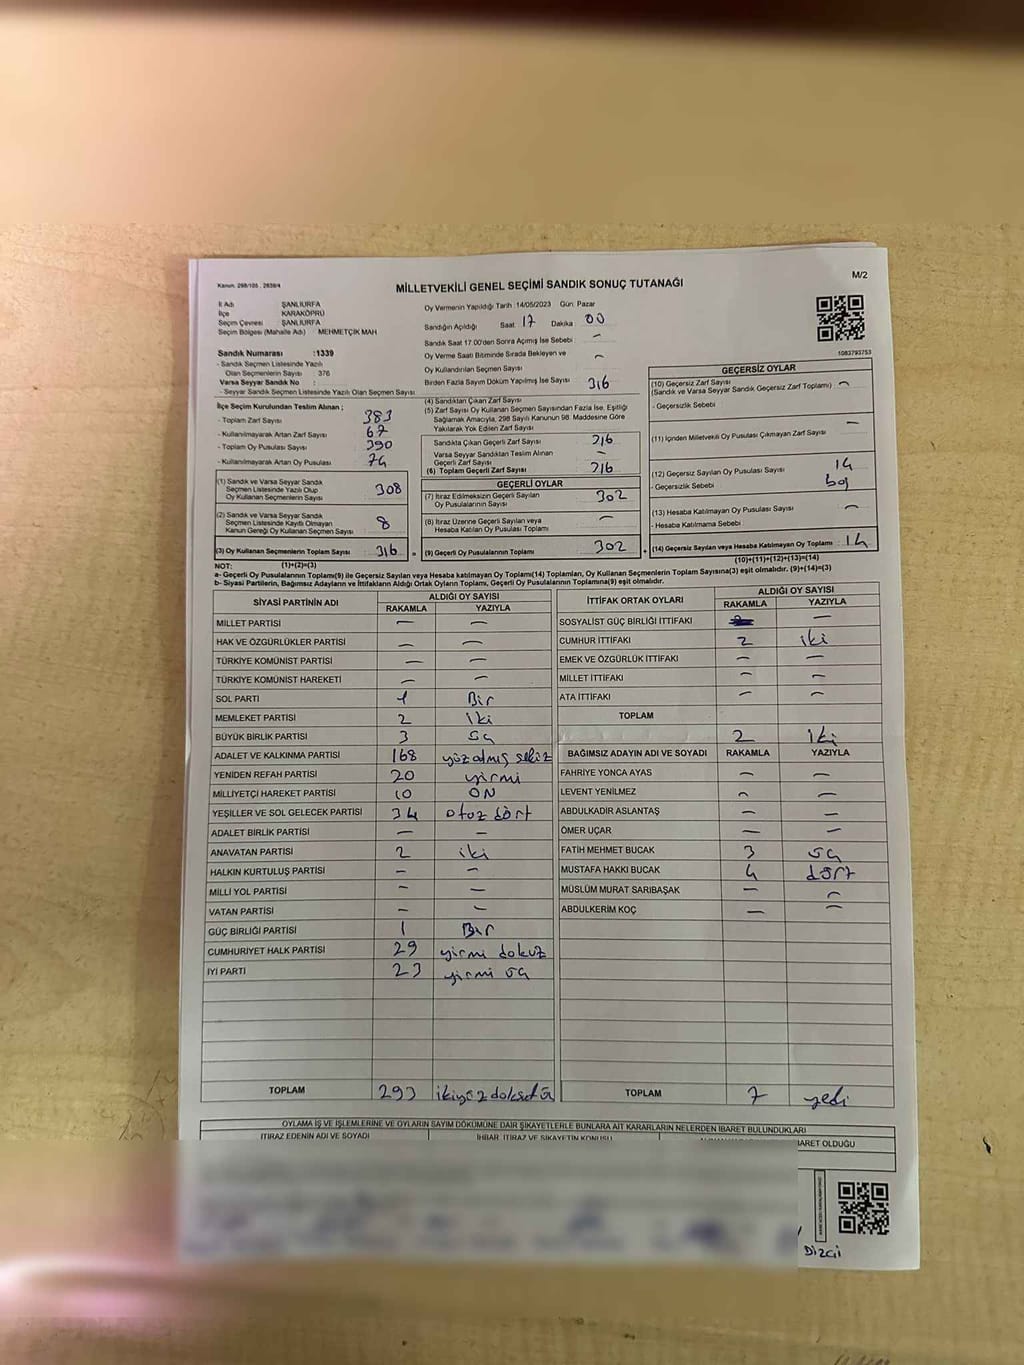 Kanun: 298/105, 2839/4
MİLLETVEKİLİ GENEL SEÇİMİ SANDIK SONUÇ TUTANAĞI
M/2
İl Adı : ŞANLIURFA
İlçe : KARAKÖPRÜ
Seçim Çevresi : ŞANLIURFA
Seçim Bölgesi (Mahalle Adı) : MEHMETÇİK MAH
Sandık Numarası : 1339
- Sandık Seçmen Listesinde Yazılı
Olan Seçmenlerin Sayısı : 376
Varsa Seyyar Sandık No :
- Seyyar Sandık Seçmen Listesinde Yazılı Olan Seçmen Sayısı
İlçe Seçim Kurulundan Teslim Alınan ;
- Toplam Zarf Sayısı 383
- Kullanılmayarak Artan Zarf Sayısı 67
- Toplam Oy Pusulası Sayısı 390
- Kullanılmayarak Artan Oy Pusulası 74
(1) Sandık ve Varsa Seyyar Sandık
Seçmen Listesinde Yazılı Olup
Oy Kullanan Seçmenlerin Sayısı 308
(2) Sandık ve Varsa Seyyar Sandık
Seçmen Listesinde Kayıtlı Olmayan
Kanun Gereği Oy Kullanan Seçmen Sayısı 8
(3) Oy Kullanan Seçmenlerin Toplam Sayısı 316 =
Oy Vermenin Yapıldığı Tarih :14/05/2023 Gün: Pazar
Sandığın Açıldığı Saat 17 Dakika : 00
Sandık Saat 17:00'den Sonra Açılmış İse Sebebi —
Oy Verme Saati Bitiminde Sırada Bekleyen ve
Oy Kullandırılan Seçmen Sayısı —
Birden Fazla Sayım Döküm Yapılmış İse Sayısı 316
(4) Sandıktan Çıkan Zarf Sayısı
(5) Zarf Sayısı Oy Kullanan Seçmen Sayısından Fazla İse, Eşitliği
Sağlamak Amacıyla, 298 Sayılı Kanunun 98. Maddesine Göre
Yakılarak Yok Edilen Zarf Sayısı
Sandıkta Çıkan Geçerli Zarf Sayısı 316
Varsa Seyyar Sandıktan Teslim Alınan
Geçerli Zarf Sayısı —
(6) Toplam Geçerli Zarf Sayısı 316
GEÇERLİ OYLAR
(7) İtiraz Edilmeksizin Geçerli Sayılan
Oy Pusulalarının Sayısı 302
(8) İtiraz Üzerine Geçerli Sayılan veya
Hesaba Katılan Oy Pusulası Toplamı —
(9) Geçerli Oy Pusulalarının Toplamı 302 +
1083793753
GEÇERSİZ OYLAR
(10) Geçersiz Zarf Sayısı —
(Sandık ve Varsa Seyyar Sandık Geçersiz Zarf Toplamı)
- Geçersizlik Sebebi
(11) İçinden Milletvekili Oy Pusulası Çıkmayan Zarf Sayısı —
(12) Geçersiz Sayılan Oy Pusulası Sayısı 14
- Geçersizlik Sebebi boş
(13) Hesaba Katılmayan Oy Pusulası Sayısı —
- Hesaba Katılmama Sebebi
(14) Geçersiz Sayılan veya Hesaba Katılmayan Oy Toplamı : 14
NOT: (1)+(2)=(3) (10)+(11)+(12)+(13)=(14)
a- Geçerli Oy Pusulalarının Toplamı(9) ile Geçersiz Sayılan veya Hesaba katılmayan Oy Toplamı(14) Toplamları, Oy Kullanan Seçmenlerin Toplam Sayısına(3) eşit olmalıdır. (9)+(14)=(3)
b- Siyasi Partilerin, Bağımsız Adayların ve İttifakların Aldığı Ortak Oyların Toplamı, Geçerli Oy Pusulalarının Toplamına(9) eşit olmalıdır.
SİYASİ PARTİNİN ADI ALDIĞI OY SAYISI
RAKAMLA YAZIYLA
MİLLET PARTİSİ — —
HAK VE ÖZGÜRLÜKLER PARTİSİ — —
TÜRKİYE KOMÜNİST PARTİSİ — —
TÜRKİYE KOMÜNİST HAREKETİ — —
SOL PARTİ 1 Bir
MEMLEKET PARTİSİ 2 iki
BÜYÜK BİRLİK PARTİSİ 3 üç
ADALET VE KALKINMA PARTİSİ 168 yüzatmış sekiz
YENİDEN REFAH PARTİSİ 20 yirmi
MİLLİYETÇİ HAREKET PARTİSİ 10 ON
YEŞİLLER VE SOL GELECEK PARTİSİ 34 otuz dört
ADALET BİRLİK PARTİSİ — —
ANAVATAN PARTİSİ 2 iki
HALKIN KURTULUŞ PARTİSİ — —
MİLLİ YOL PARTİSİ — —
VATAN PARTİSİ — —
GÜÇ BİRLİĞİ PARTİSİ 1 Bir
CUMHURİYET HALK PARTİSİ 29 yirmi dokuz
İYİ PARTİ 23 yirmi üç
TOPLAM 293 ikiyüz doksdan üç
İTTİFAK ORTAK OYLARI ALDIĞI OY SAYISI
RAKAMLA YAZIYLA
SOSYALİST GÜÇ BİRLİĞİ İTTİFAKI —
CUMHUR İTTİFAKI 2 iki
EMEK VE ÖZGÜRLÜK İTTİFAKI — —
MİLLET İTTİFAKI — —
ATA İTTİFAKI — —
TOPLAM 2 iki
BAĞIMSIZ ADAYIN ADI VE SOYADI RAKAMLA YAZIYLA
FAHRİYE YONCA AYAS — —
LEVENT YENİLMEZ — —
ABDULKADİR ASLANTAŞ — —
ÖMER UÇAR — —
FATİH MEHMET BUCAK 3 üç
MUSTAFA HAKKI BUCAK 4 dört
MÜSLÜM MURAT SARIBAŞAK — —
ABDULKERİM KOÇ — —
TOPLAM 7 yedi
OYLAMA İŞ VE İŞLEMLERİNE VE OYLARIN SAYIM DÖKÜMÜNE DAİR ŞİKAYETLERLE BUNLARA AİT KARARLARIN NELERDEN İBARET BULUNDUKLARI
İTİRAZ EDENİN ADI VE SOYADI İHBAR, İTİRAZ VE ŞİKAYETİN KONUSU İBARET OLDUĞU
Dizgi